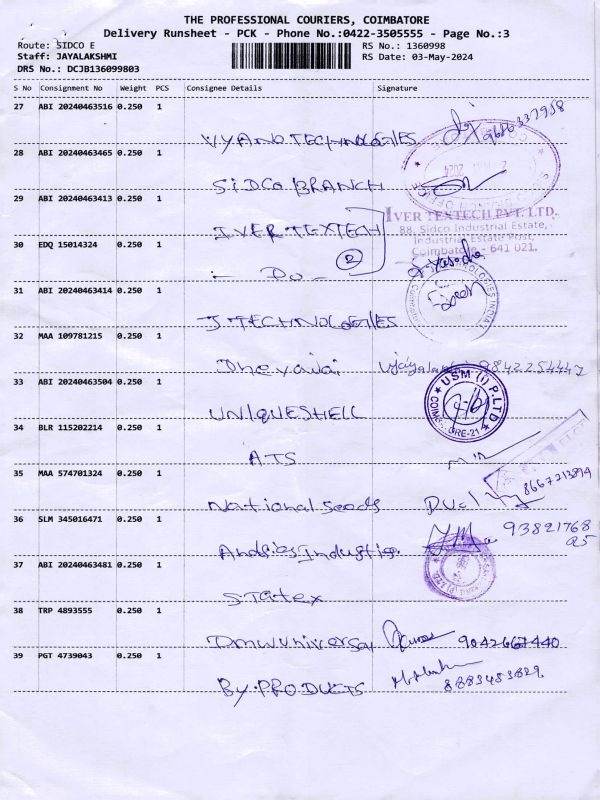 THE PROFESSIONAL COURIERS, COIMBATORE
Delivery Runsheet - PCK - Phone No.:0422-3505555 - Page No.:3
Route: SIDCO E
RS No.: 1360998
Staff: JAYALAKSHMI
RS Date: 03-May-2024
DRS No.: DCJB136099803
S No Consignment No Weight PCS Consignee Details Signature
27 ABI 20240463516 0.250 1
VYANO TECHNOLOGIES
28 ABI 20240463465 0.250 1
SIDCO BRANCH
29 ABI 20240463413 0.250 1
IVER TEXTECH
IVER TEXTECH PVT. LTD.
88, Sidco Industrial Estate,
Industrial Estate Post,
Coimbatore - 641 021.
30 EDQ 15014324 0.250 1
- Do - 2
31 ABI 20240463414 0.250 1
J. TECHNOLOGIES
32 MAA 109781215 0.250 1
9842254447
33 ABI 20240463504 0.250 1
UNIQUESHELL
USM (I) P.LTD
34 BLR 115202214 0.250 1
ATS
35 MAA 574701324 0.250 1
National Seeds 8667213814
36 SLM 345016471 0.250 1
9382176825
37 ABI 20240463481 0.250 1
Statex
38 TRP 4893555 0.250 1
Dmw universal 9042667440
39 PGT 4739043 0.250 1
BY. PRODUCTS 8883453829